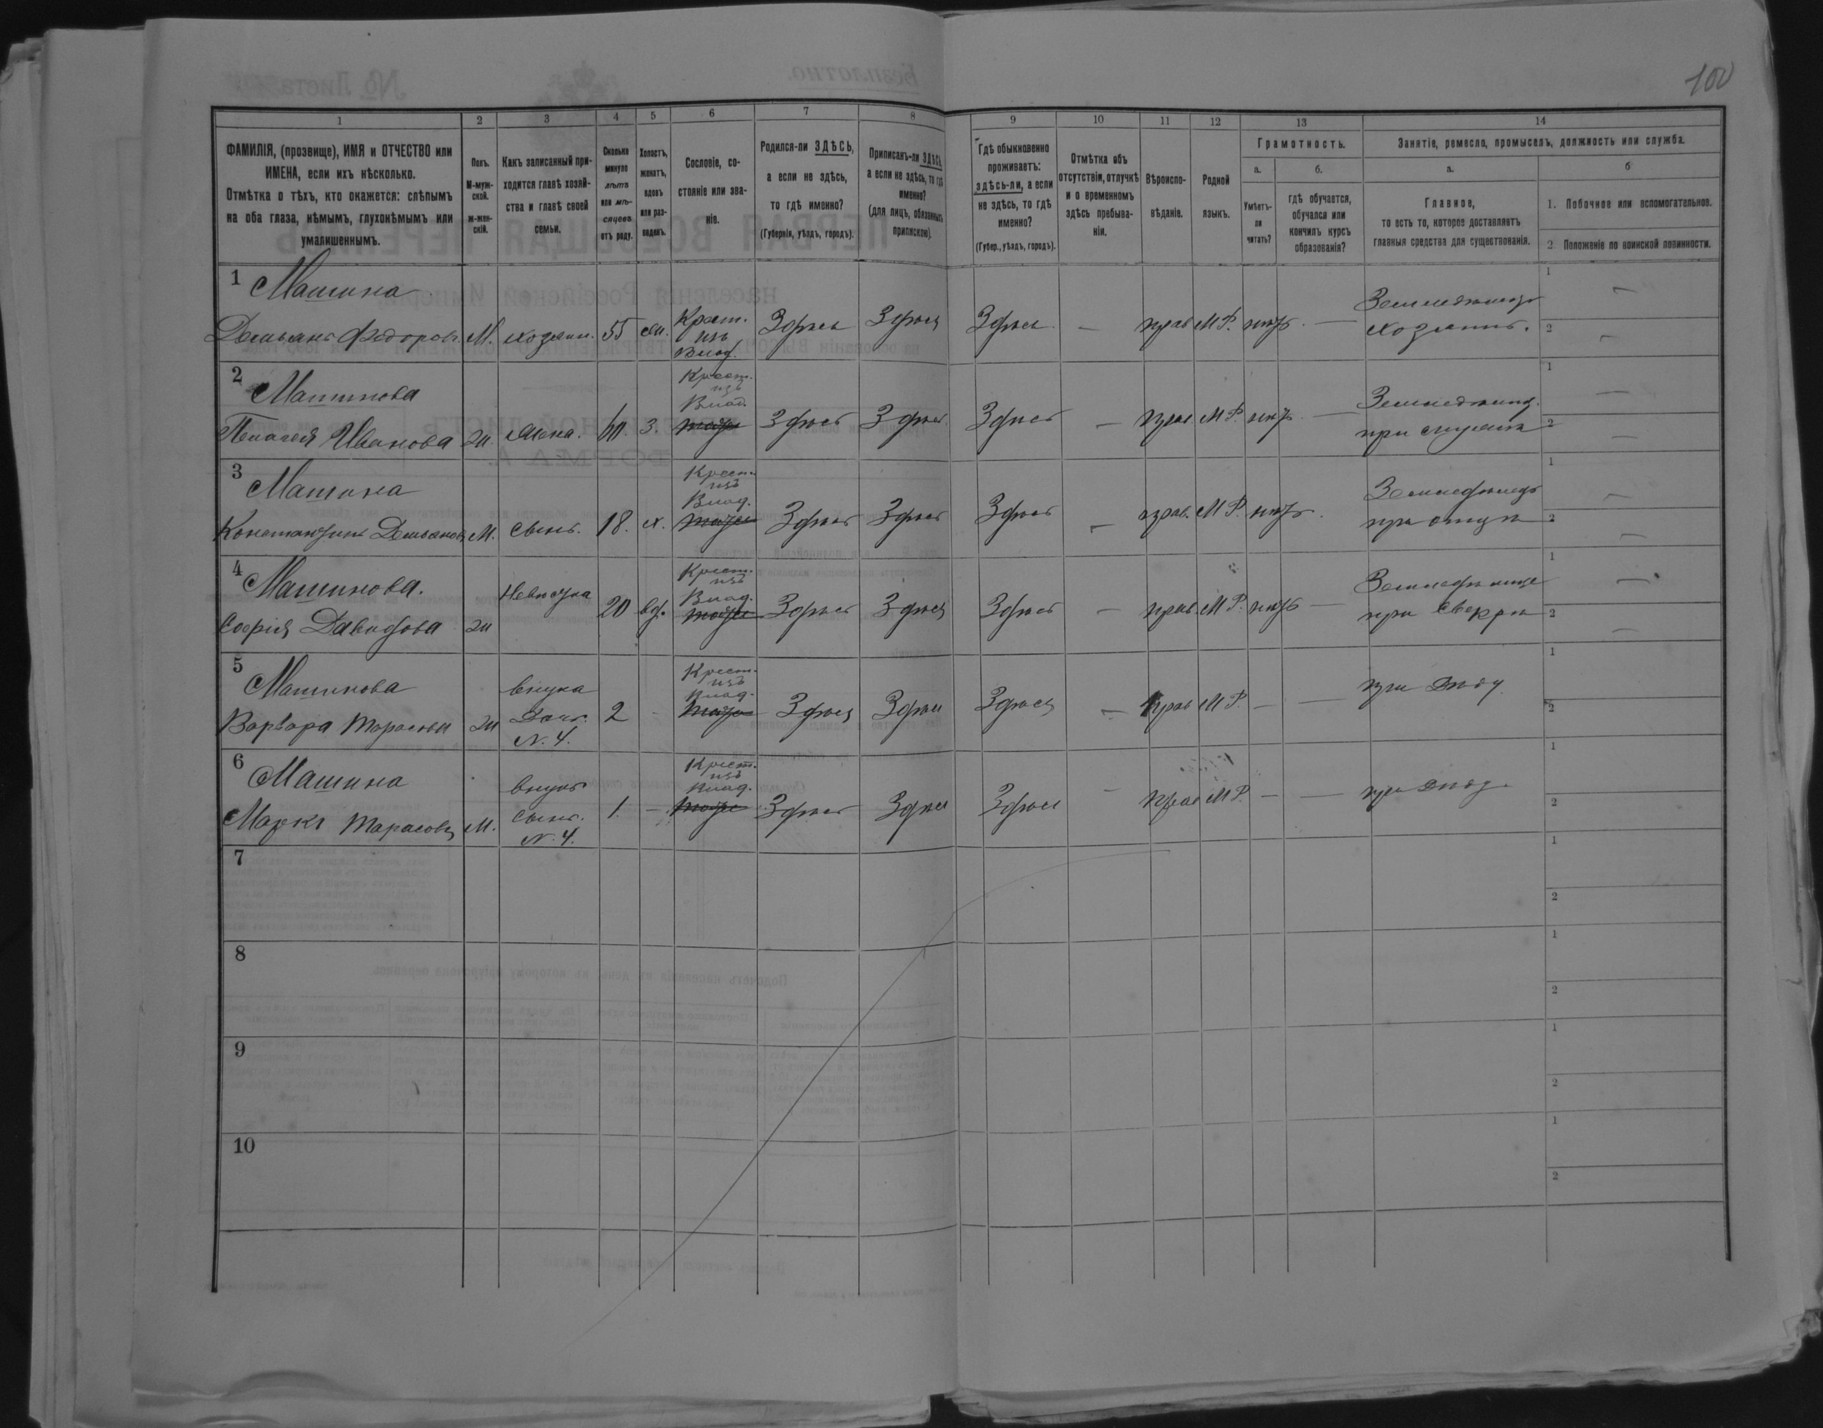 100
1 2 3 4 5 6 7 8 9 10 11 12 13 14
ФАМИЛІЯ, (прозвище), ИМЯ и ОТЧЕСТВО или
ИМЕНА, если ихъ нѣсколько.
Отмѣтка о тѣхъ, кто окажется: слѣпымъ
на оба глаза, нѣмымъ, глухонѣмымъ или
умалишеннымъ.
Полъ.
М-муж-
ской.
ж-жен-
скій.
Какъ записанный при-
ходится главѣ хозяй-
ства и главѣ своей
семьи.
Сколько
минуло
лѣтъ
или мѣ-
сяцевъ
отъ роду.
Холостъ,
женатъ,
вдовъ
или раз-
веденъ.
Сословіе, со-
стояніе или зва-
ніе.
Родился-ли ЗДѢСЬ,
а если не здѣсь,
то гдѣ именно?
(Губернія, уѣздъ, городъ).
Приписанъ-ли ЗДѢСЬ,
а если не здѣсь, то гдѣ
именно?
(для лицъ, обязанныхъ
припискою).
Гдѣ обыкновенно
проживаетъ:
здѣсь-ли, а если
не здѣсь, то гдѣ
именно?
(Губер., уѣздъ, городъ).
Отмѣтка объ
отсутствіи, отлучкѣ
и о временномъ
здѣсь пребыва-
ніи.
Вѣроиспо-
вѣданіе.
Родной
языкъ.
Грамотность.
а. б.
Умѣетъ-
ли
читать?
гдѣ обучается,
обучался или
кончилъ курсъ
образованія?
Занятіе, ремесло, промыселъ, должность или служба.
а. б
Главное,
то есть то, которое доставляетъ
главныя средства для существованія.
1. Побочное или вспомогательное.
2. Положеніе по воинской повинности.
1 Машина
Демьянъ Федоровъ М. хозяин. 55 Крест. изъ Влад. Здѣсь Здѣсь Здѣсь — прав М Р. нѣтъ — Земледѣлецъ хозяинъ. 1 — 2 —
2 Машинова
Пелагея Иванова ж жена. 60 з. Крест. изъ Влад. Здѣсь Здѣсь Здѣсь — прав М Р. нѣтъ — при мужѣ 1 — 2 —
3 Машина
Константинъ Демьяновъ М. сынъ. 18. х. Крест. изъ Влад. Здѣсь Здѣсь Здѣсь — прав. М Р. нѣтъ. Земледѣлецъ при отцѣ 1 — 2 —
4 Машинова.
Софія Давидова ж Невѣстка 20 вд. Крест. изъ Влад. Здѣсь Здѣсь Здѣсь — прав М Р. нѣтъ — при свекрѣ 1 — 2 —
5 Машинова
Варвара Тарасова ж внука дочь N. 4. 2 - Крест. изъ Влад. Здѣсь Здѣсь Здѣсь — прав М Р. — — при дѣду 1 2
6 Машина
Марко Тарасовъ М. внукъ сынъ. N. 4. 1. — Крест. изъ Влад. Здѣсь Здѣсь Здѣсь — прав М Р. — — при дѣд. 1 2
7 1 2
8 1 2
9 1 2
10 1 2